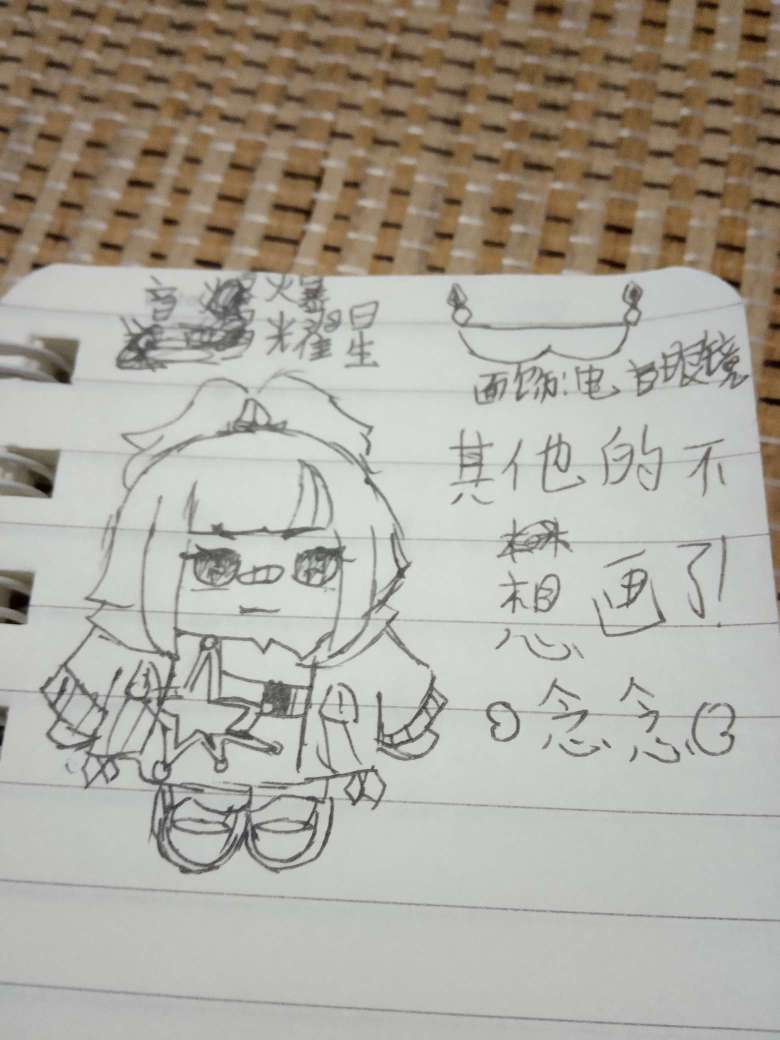 音爆
耀星
面饰:电音眼镜
其他的不
想画了!
念念